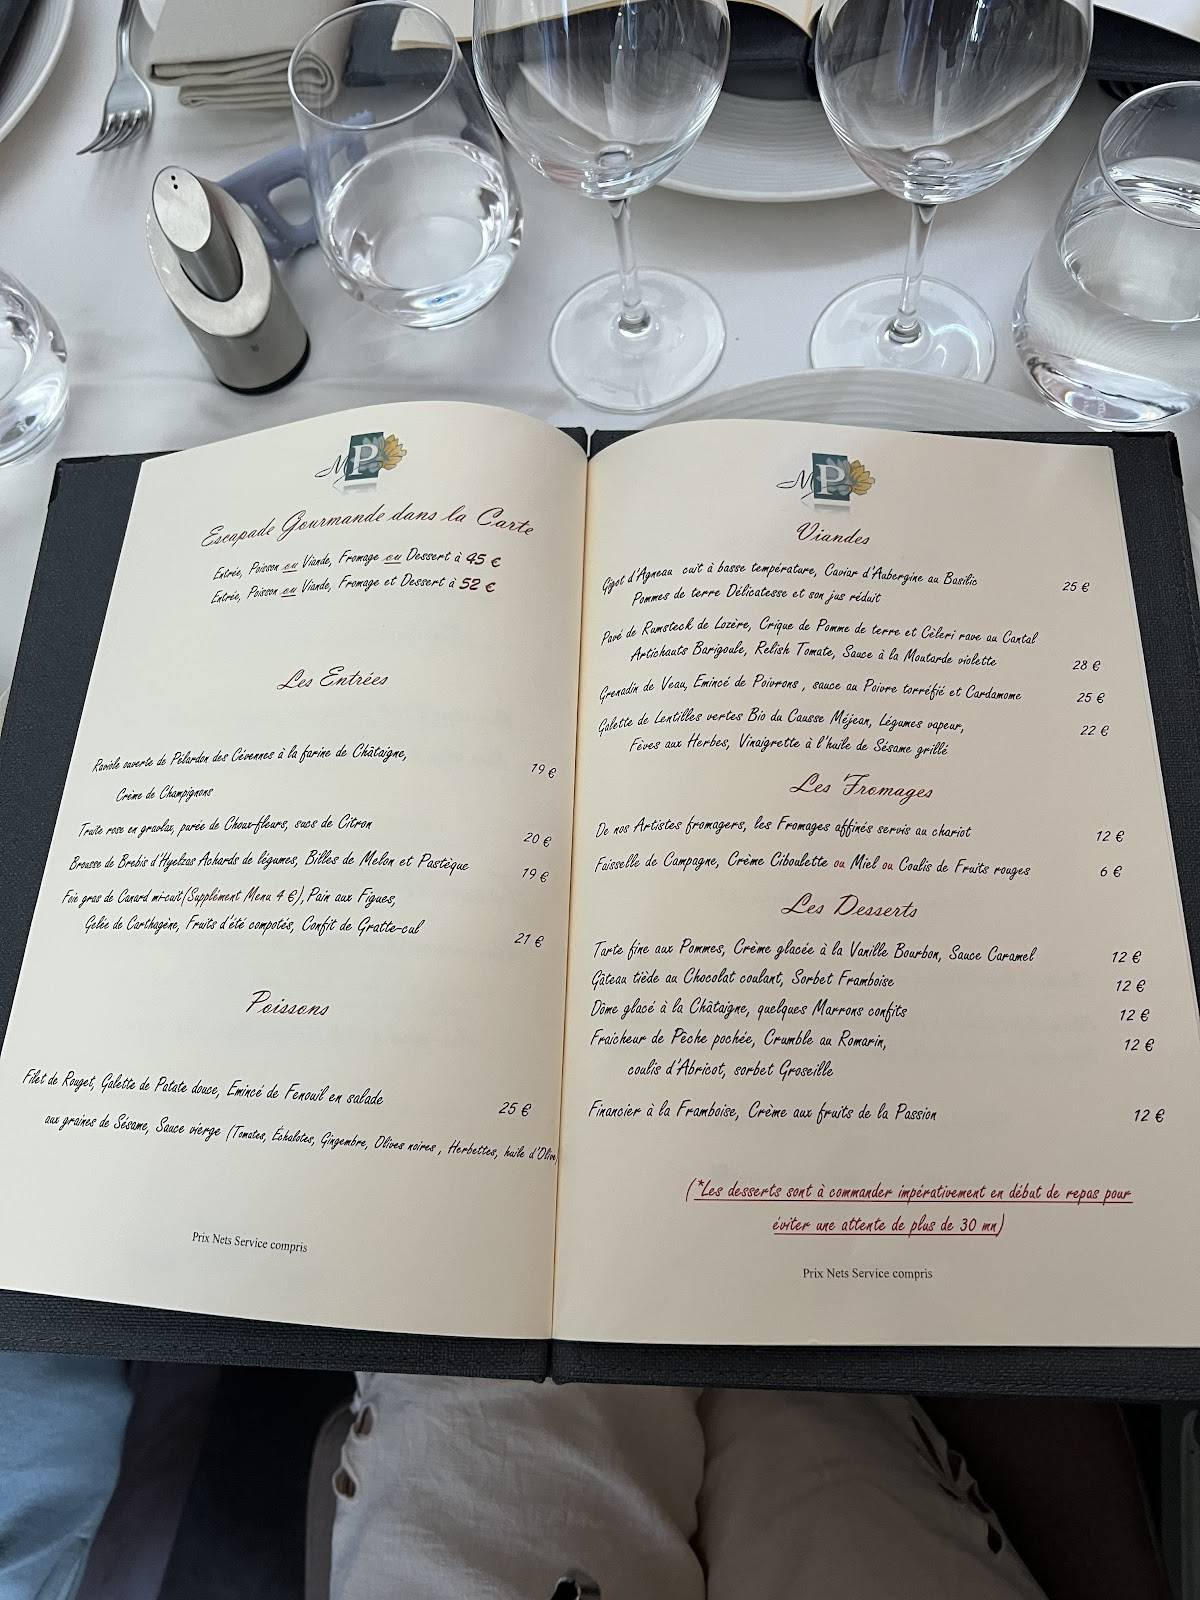 MP
Escapade Gourmande dans la Carte
Entrée, Poisson ou Viande, Fromage ou Dessert à 45 €
Entrée, Poisson ou Viande, Fromage et Dessert à 52 €
Les Entrées
Raviole ouverte de Pélardon des Cévennes à la farine de Châtaigne,
Crème de Champignons 19 €
Truite rose en gravlax, purée de Choux-fleurs, sucs de Citron 20 €
Brousse de Brebis d'Hyelzas Achards de légumes, Billes de Melon et Pastèque 19 €
Foie gras de Canard mi-cuit(Supplément Menu 4 €), Pain aux Figues,
Gelée de Carthagène, Fruits d'été compotés, Confit de Gratte-cul 21 €
Poissons
Filet de Rouget, Galette de Patate douce, Emincé de Fenouil en salade 25 €
aux graines de Sésame, Sauce vierge (Tomates, Échalotes, Gingembre, Olives noires , Herbettes, huile d'Olive)
Prix Nets Service compris
MP
Viandes
Gigot d'Agneau cuit à basse température, Caviar d'Aubergine au Basilic 25 €
Pommes de terre Délicatesse et son jus réduit
Pavé de Rumsteck de Lozère, Crique de Pomme de terre et Céleri rave au Cantal
Artichauts Barigoule, Relish Tomate, Sauce à la Moutarde violette 28 €
Grenadin de Veau, Emincé de Poivrons , sauce au Poivre torréfié et Cardamome 25 €
Galette de Lentilles vertes Bio du Causse Méjean, Légumes vapeur, 22 €
Fèves aux Herbes, Vinaigrette à l'huile de Sésame grillé
Les Fromages
De nos Artistes fromagers, les Fromages affinés servis au chariot 12 €
Faisselle de Campagne, Crème Ciboulette ou Miel ou Coulis de Fruits rouges 6 €
Les Desserts
Tarte fine aux Pommes, Crème glacée à la Vanille Bourbon, Sauce Caramel 12 €
Gâteau tiède au Chocolat coulant, Sorbet Framboise 12 €
Dôme glacé à la Châtaigne, quelques Marrons confits 12 €
Fraicheur de Pêche pochée, Crumble au Romarin, 12 €
coulis d'Abricot, sorbet Groseille
Financier à la Framboise, Crème aux fruits de la Passion 12 €
(*Les desserts sont à commander impérativement en début de repas pour
éviter une attente de plus de 30 mn)
Prix Nets Service compris